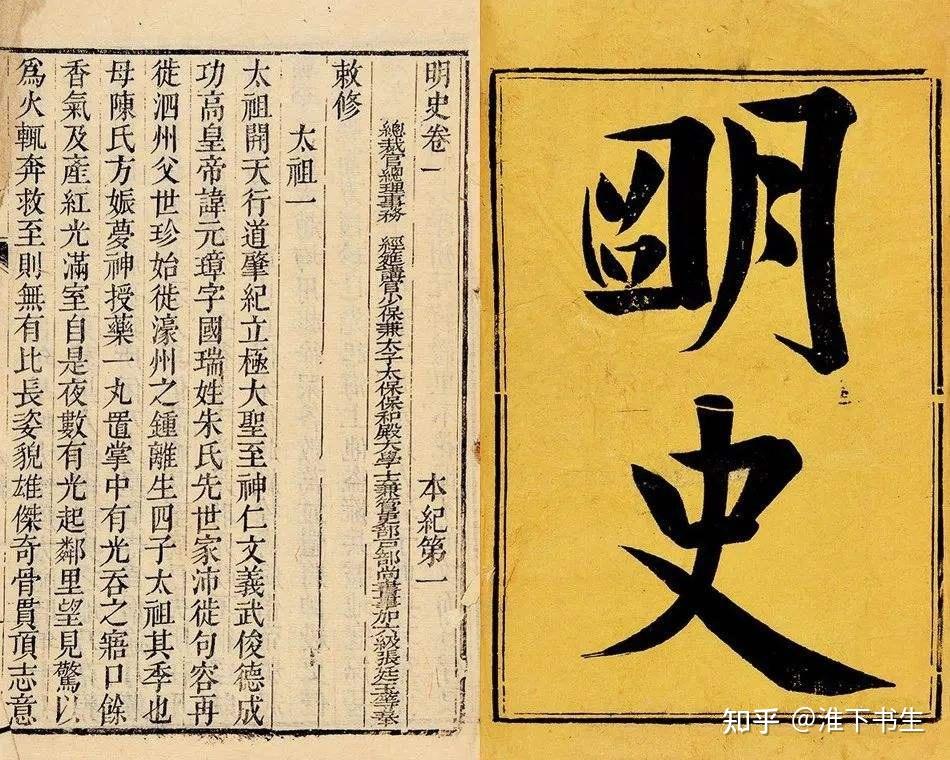 明史
明史卷一 本紀第一
總裁官總理事務 經筵講官少保兼太子太保保和殿大學士兼管吏部戶部尚書事加六級張廷玉等奉
敕修
太祖一
太祖開天行道肇紀立極大聖至神仁文義武俊德成
功高皇帝諱元璋字國瑞姓朱氏先世家沛徙句容再
徙泗州父世珍始徙濠州之鍾離生四子太祖其季也
母陳氏方娠夢神授藥一丸置掌中有光吞之寤口餘
香氣及產紅光滿室自是夜數有光起鄰里望見驚以
爲火輒奔救至則無有比長姿貌雄傑奇骨貫頂志意
知乎 @淮下书生